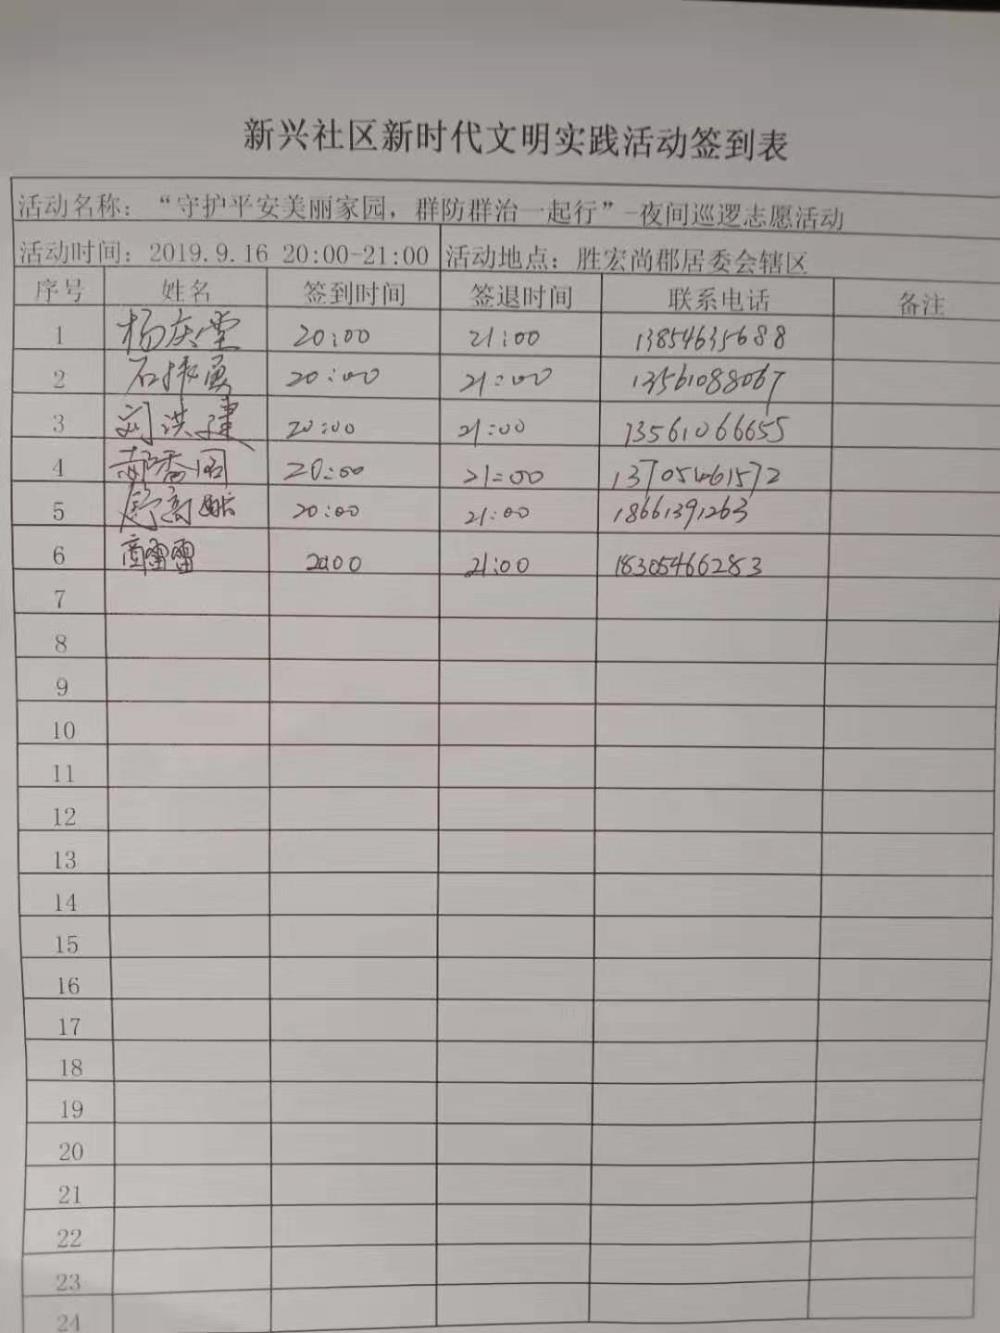 新兴社区新时代文明实践活动签到表
活动名称：“守护平安美丽家园，群防群治一起行”-夜间巡逻志愿活动
活动时间：2019.9.16 20:00-21:00 活动地点：胜宏尚郡居委会辖区
序号 姓名 签到时间 签退时间 联系电话 备注
1 杨庆堂 20:00 21:00 13854635688
2 石振勇 20:00 21:00 13561088067
3 刘洪建 20:00 21:00 13561066655
4 郝 20:00 21:00 13705461572
5 20:00 21:00 18661391263
6 商雷雷 20:00 21:00 18305466283
7
8
9
10
11
12
13
14
15
16
17
18
19
20
21
22
23
24